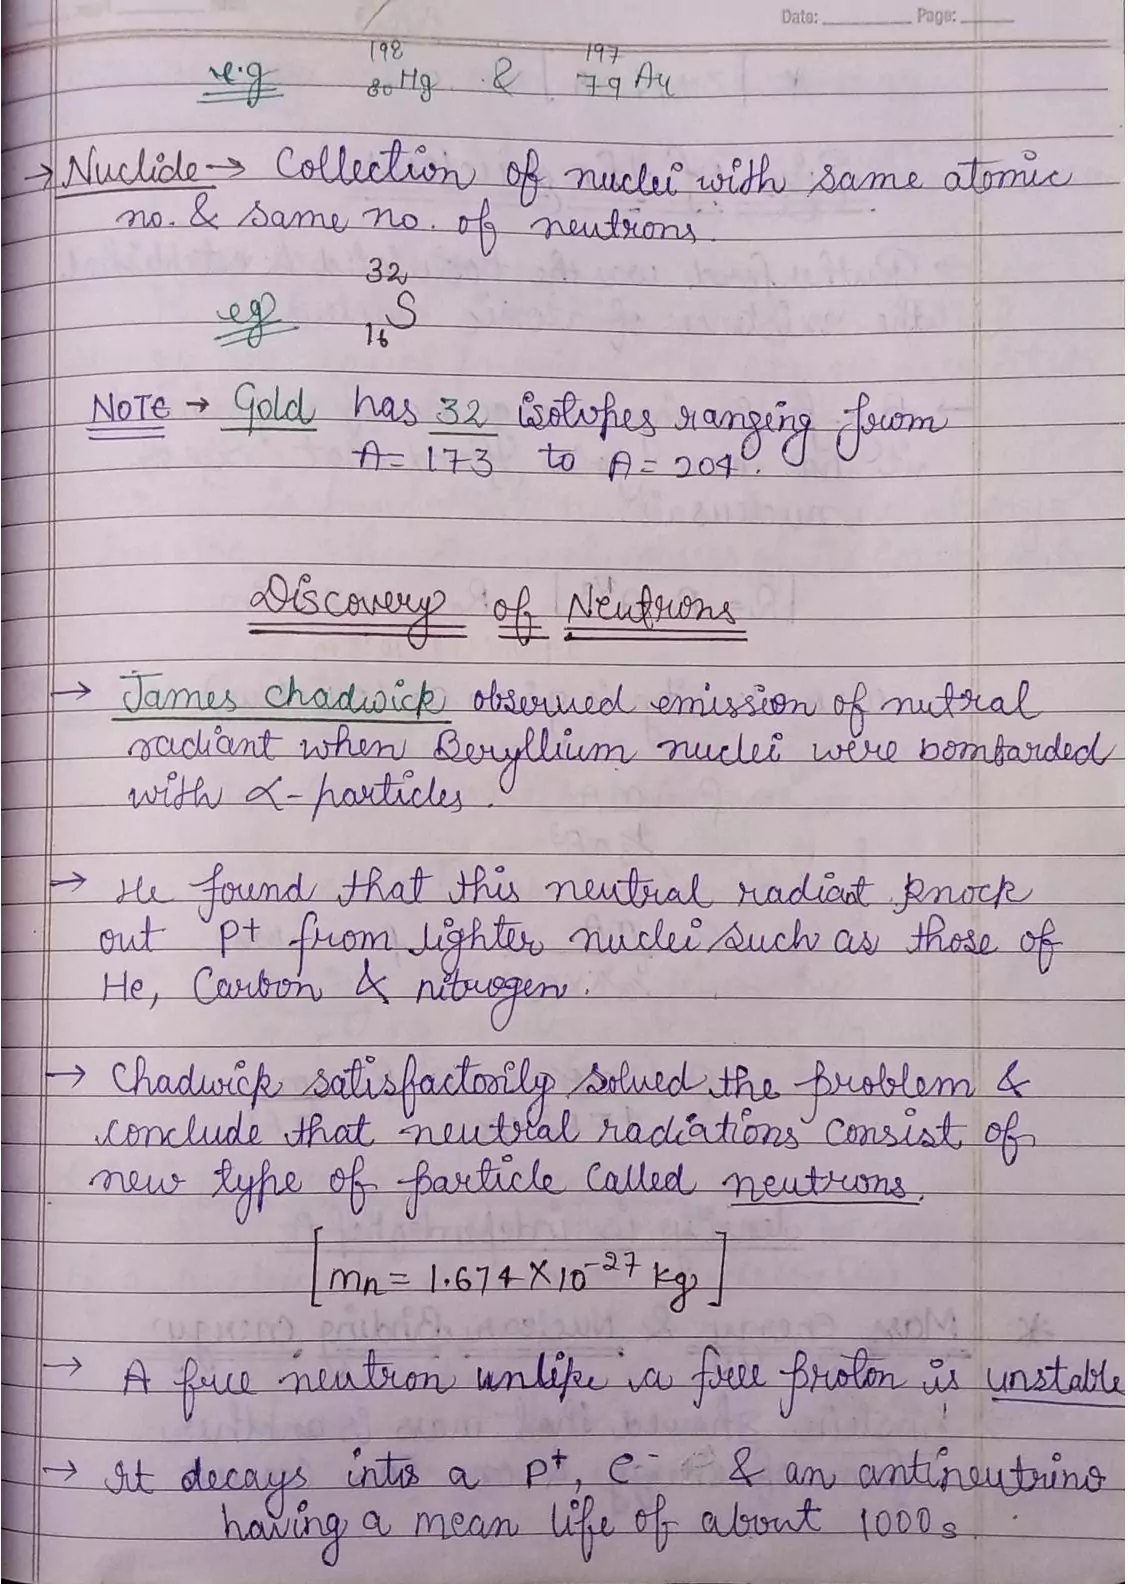 Date: ________ Page: ______
e.g ¹⁹⁸₈₀Hg & ¹⁹⁷₇₉Au
→ Nuclide → Collection of nuclei with same atomic
no. & same no. of neutrons.
eg ³²₁₆S
NOTE → Gold has 32 isotopes ranging from
A = 173 to A = 204.
Discovery of Neutrons
→ James Chadwick observed emission of nutral
radiant when Beryllium nuclei were bombarded
with α-particles.
→ He found that this neutral radiant knock
out p⁺ from lighter nuclei such as those of
He, Carbon & nitrogen.
→ Chadwick satisfactorily solved the problem &
conclude that neutral radiations consist of
new type of particle called neutrons.
[mn = 1.674 × 10⁻²⁷ kg]
→ A free neutron unlike a free proton is unstable
→ It decays into a p⁺, e⁻ & an antineutrino
having a mean life of about 1000s.